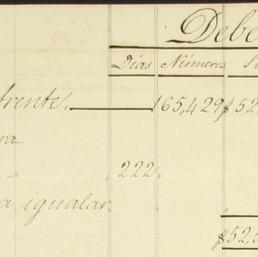 Debe
Días Números
frente. 165,429 $52
222
a igualar.
$52,